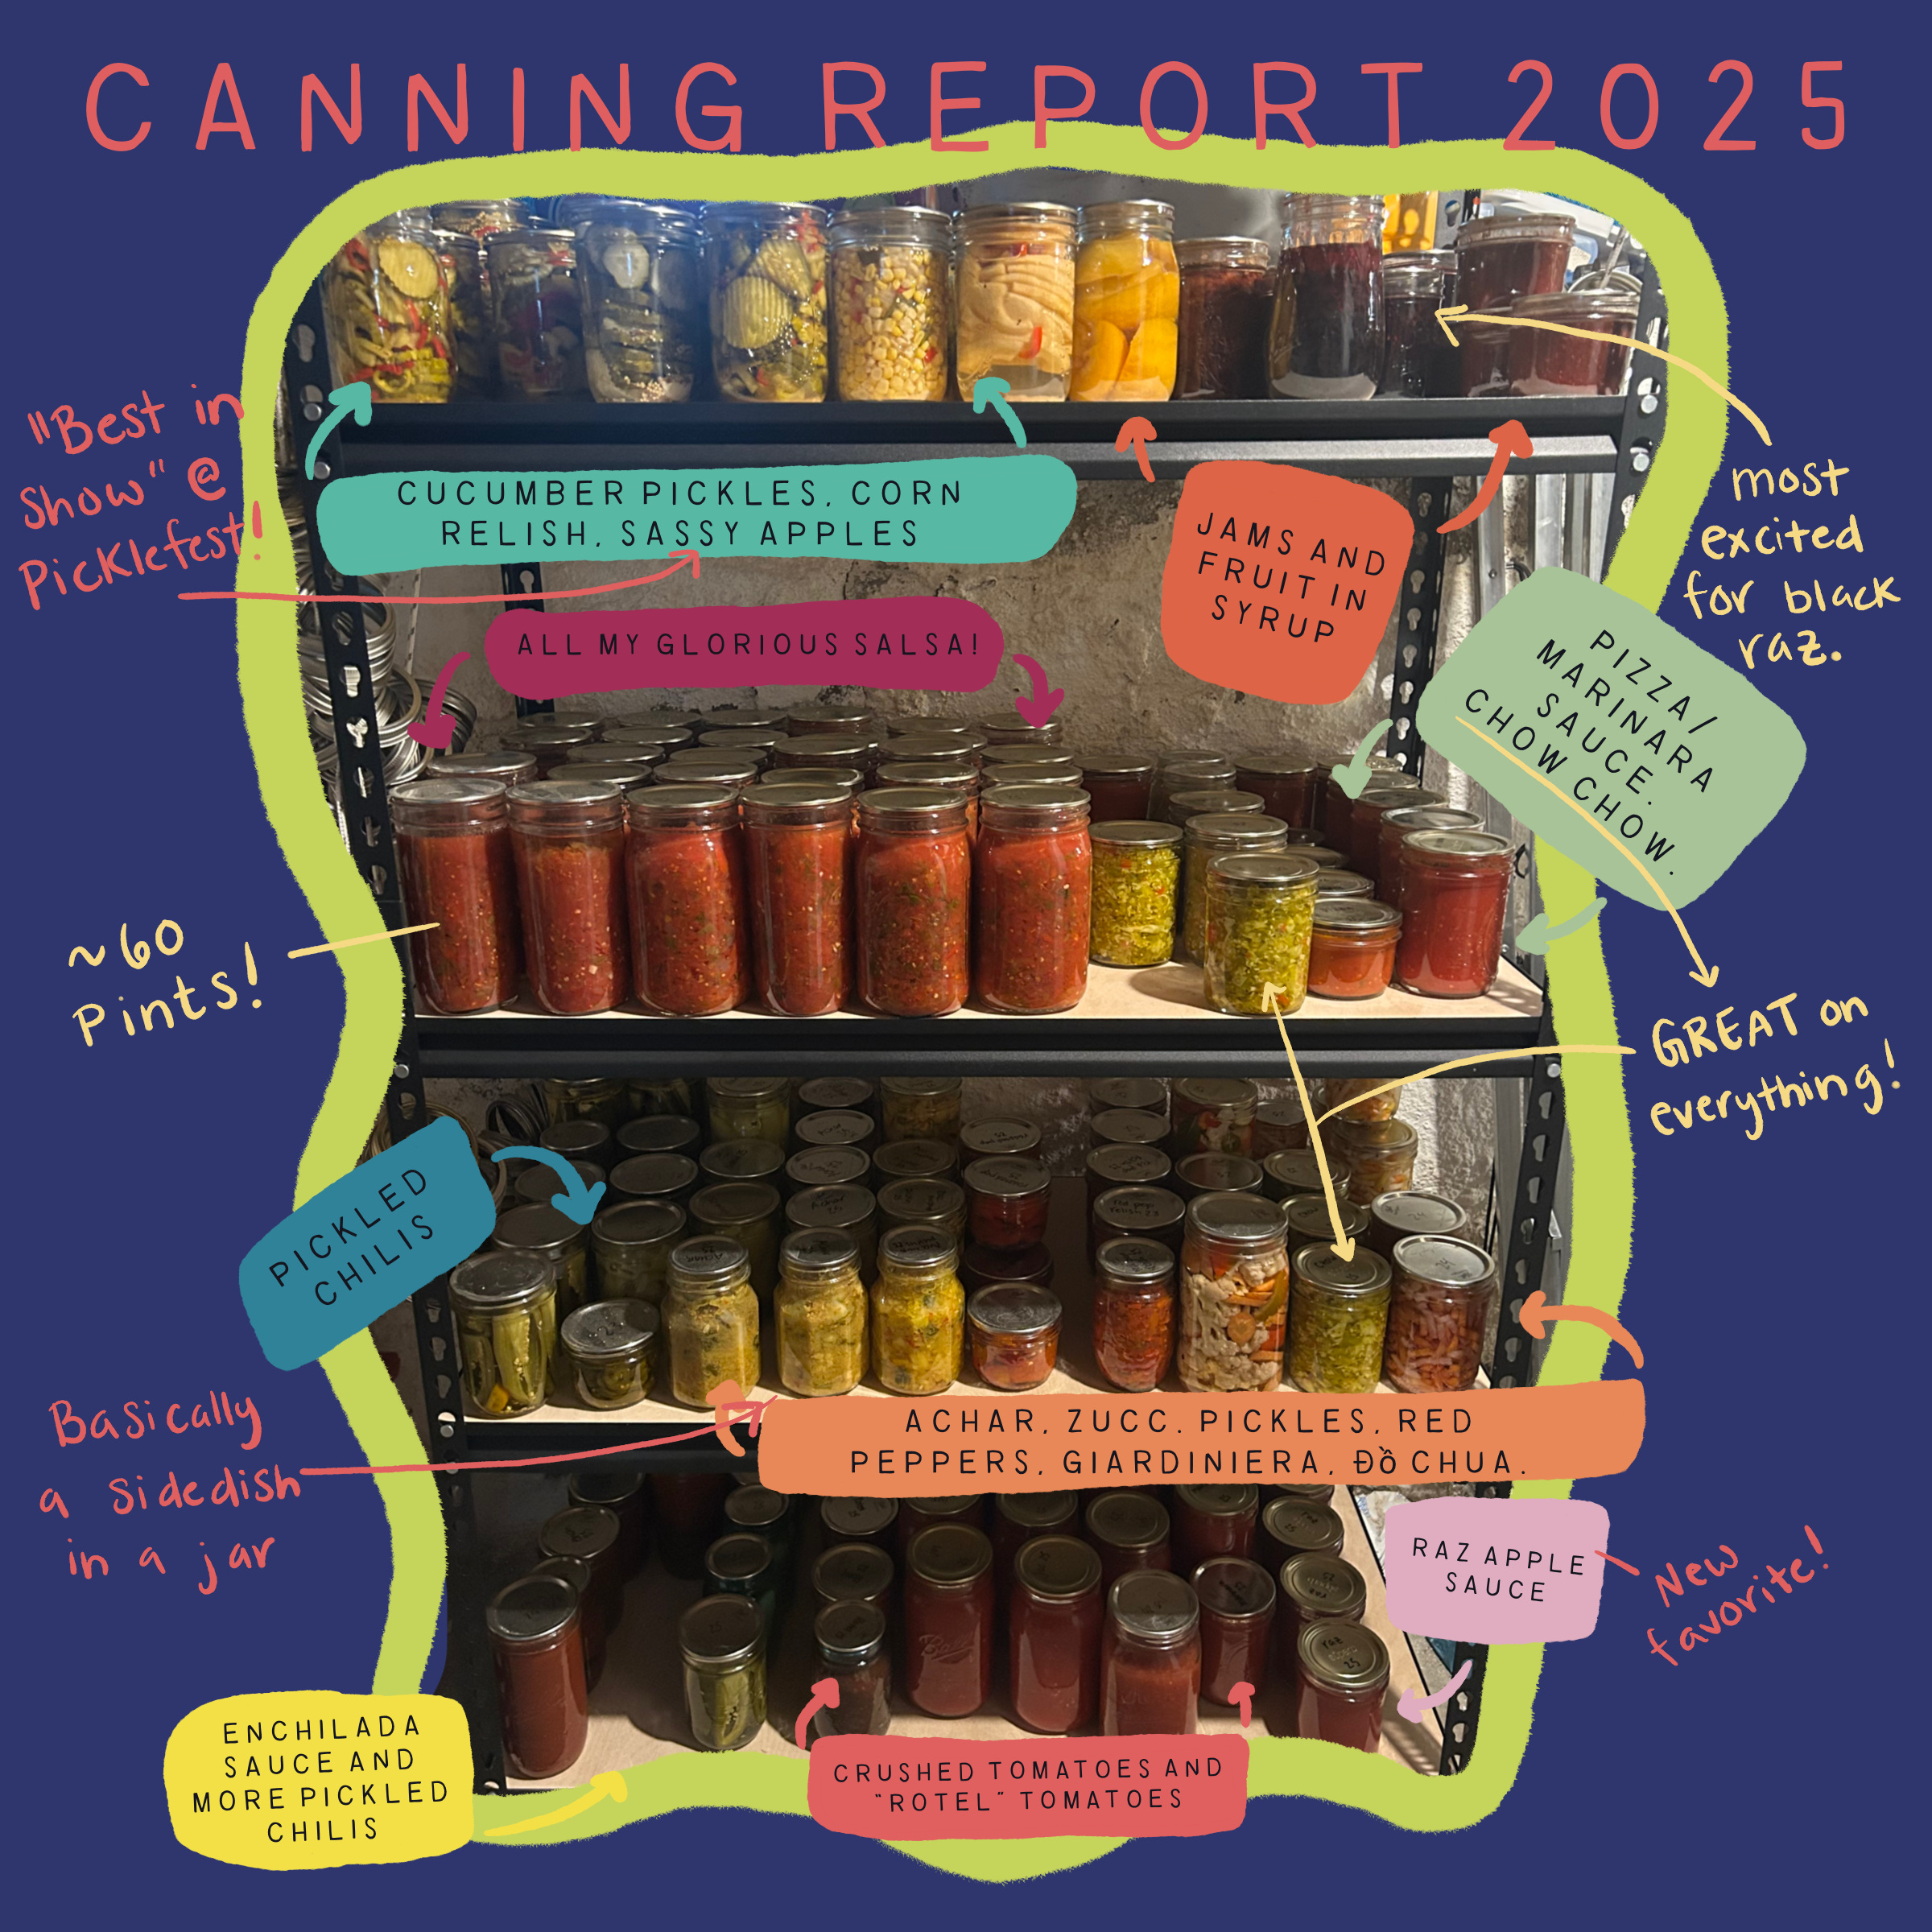 CANNING REPORT 2025
"Best in
Show" @
Picklefest!
CUCUMBER PICKLES, CORN
RELISH, SASSY APPLES
JAMS AND
FRUIT IN
SYRUP
most
excited
for black
raz.
ALL MY GLORIOUS SALSA!
PIZZA/
MARINARA
SAUCE.
CHOW CHOW.
~60
Pints!
GREAT on
everything!
PICKLED
CHILIS
Basically
a sidedish
in a jar
ACHAR, ZUCC. PICKLES, RED
PEPPERS, GIARDINIERA, Đồ CHUA.
RAZ APPLE
SAUCE
New
favorite!
raz
25
Ball
ENCHILADA
SAUCE AND
MORE PICKLED
CHILIS
CRUSHED TOMATOES AND
"ROTEL" TOMATOES